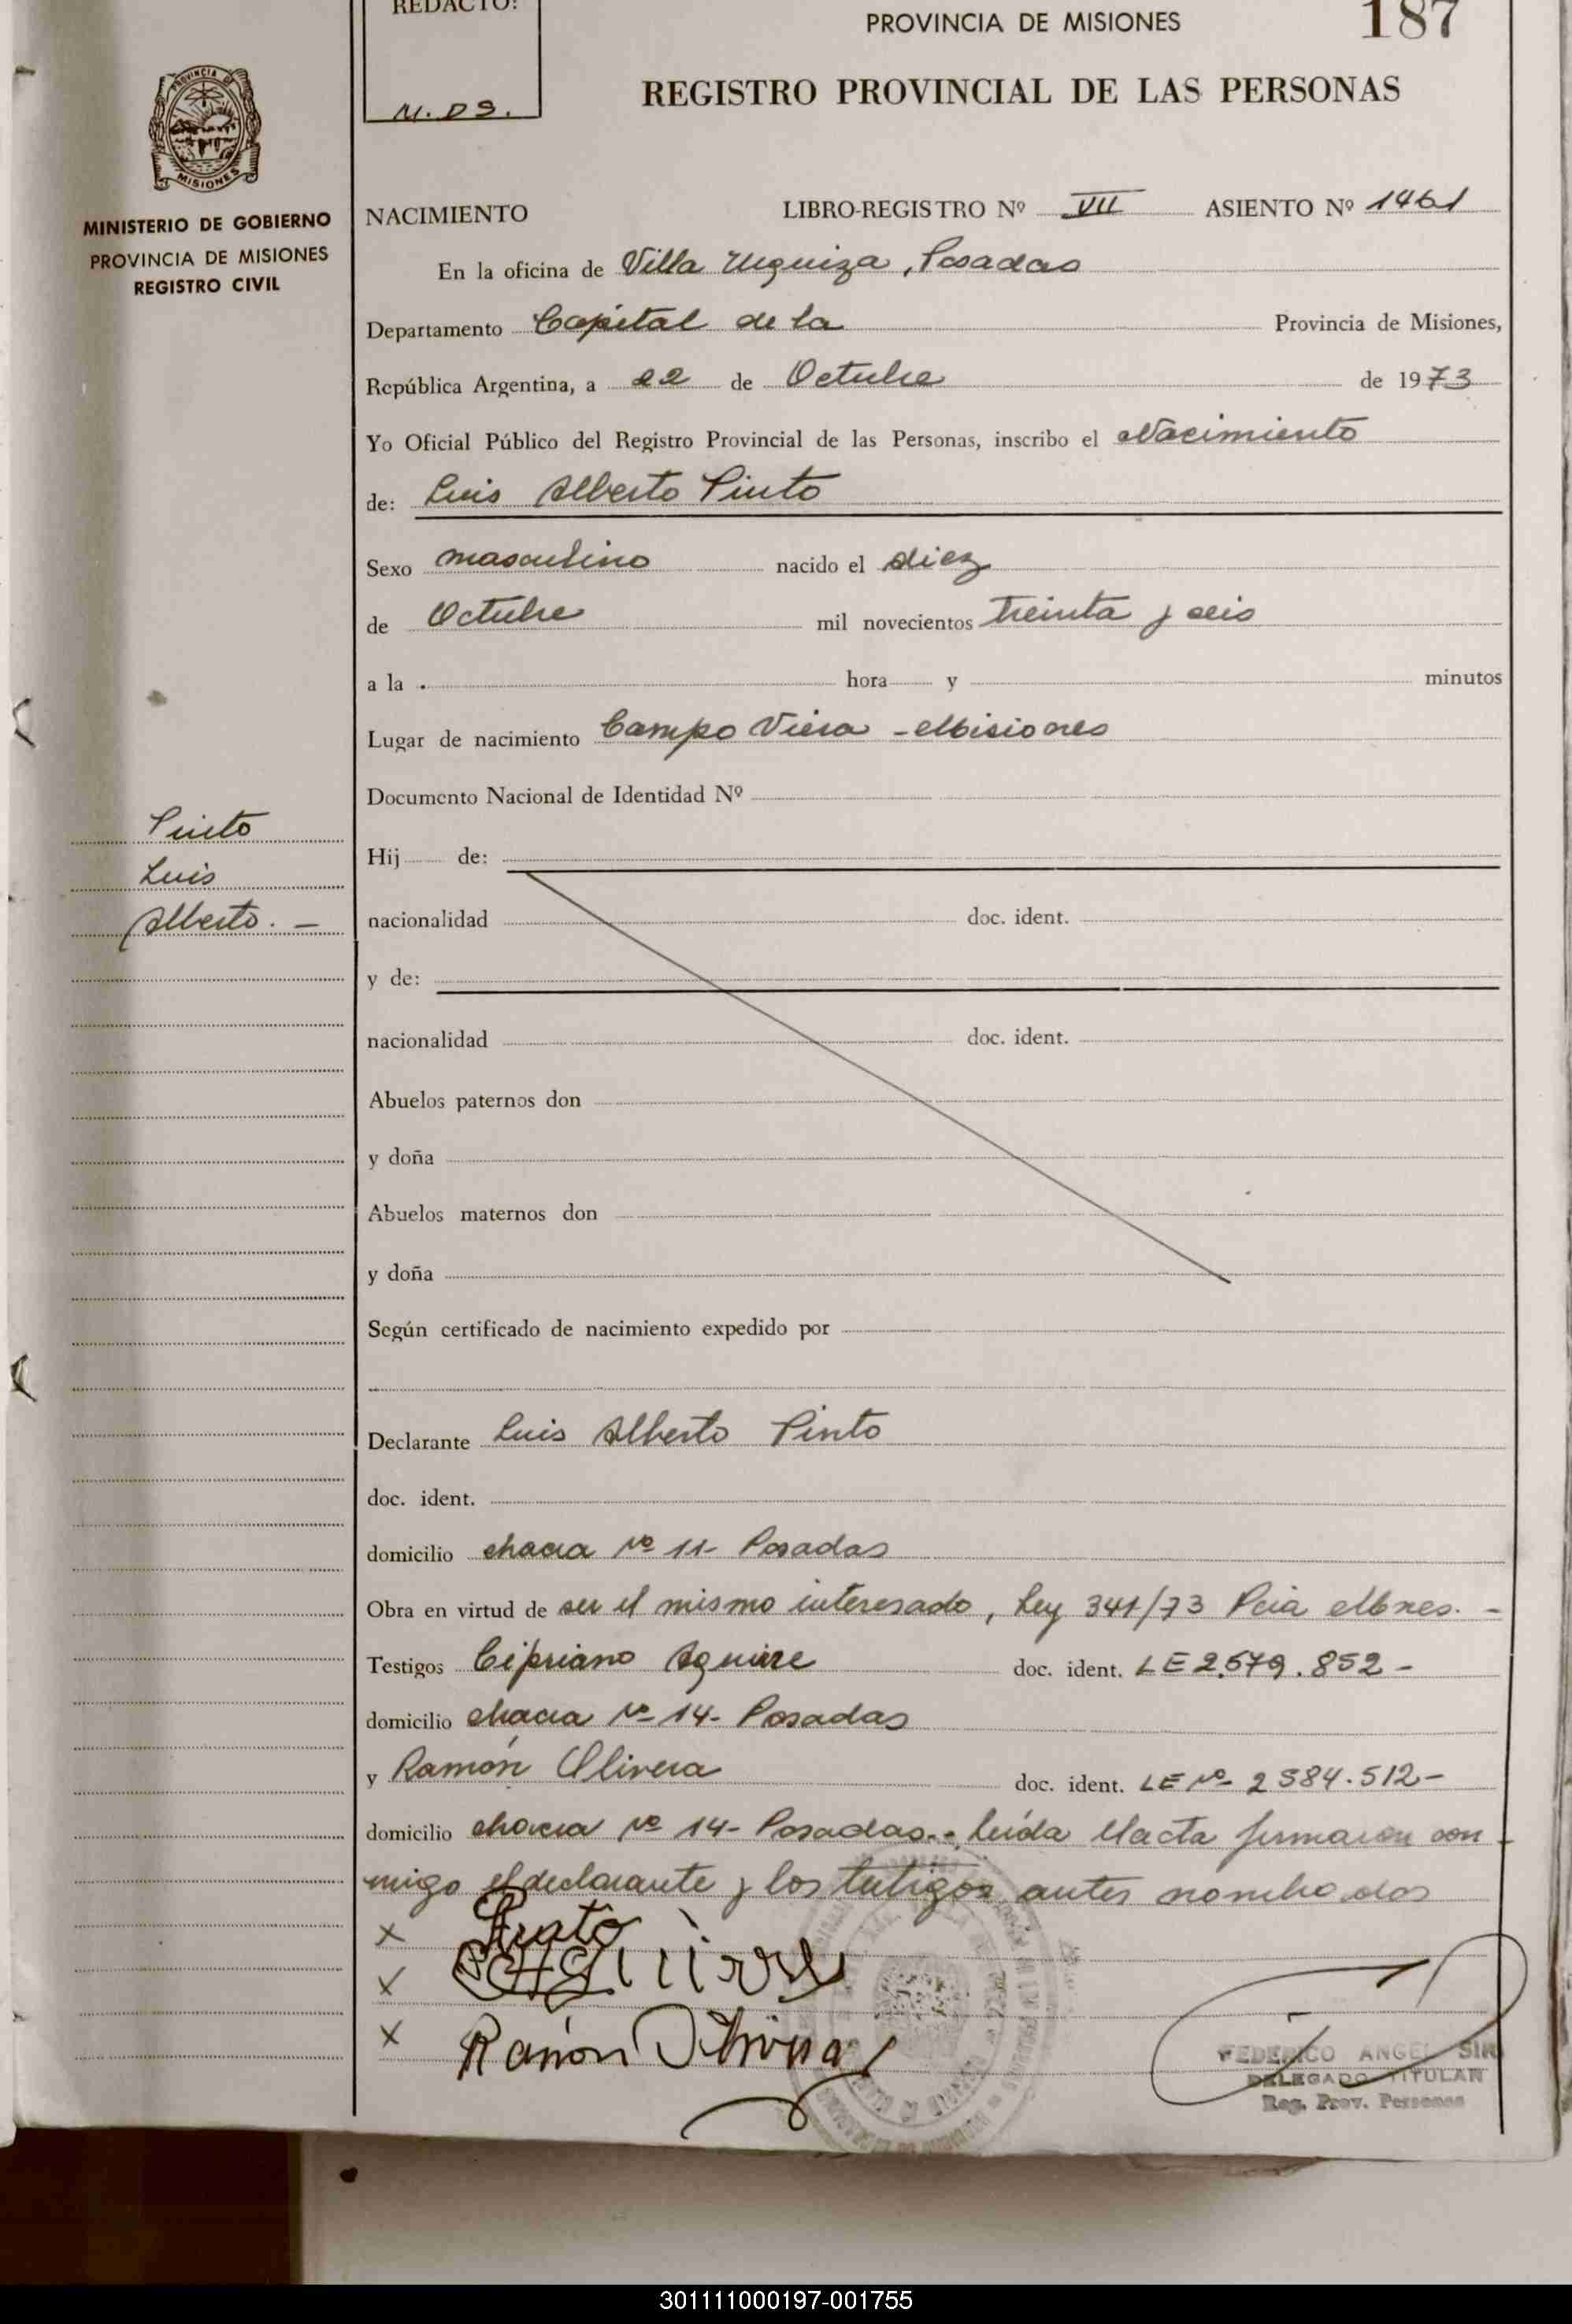 REDACTO:
M. DS.
PROVINCIA DE MISIONES
187
REGISTRO PROVINCIAL DE LAS PERSONAS
MISIONES
MINISTERIO DE GOBIERNO
PROVINCIA DE MISIONES
REGISTRO CIVIL
NACIMIENTO LIBRO-REGISTRO Nº VII ASIENTO Nº 1461
En la oficina de Villa Urquiza, Posadas
Departamento Capital de la Provincia de Misiones,
República Argentina, a 22 de Octubre de 1973
Yo Oficial Público del Registro Provincial de las Personas, inscribo el Nacimiento
de: Luis Alberto Pinto
Sexo masculino nacido el diez
de Octubre mil novecientos treinta y seis
a la . hora y minutos
Lugar de nacimiento Campo Viera - Misiones
Documento Nacional de Identidad Nº
Pinto
Luis
Alberto. -
Hij de:
nacionalidad doc. ident.
y de:
nacionalidad doc. ident.
Abuelos paternos don
y doña
Abuelos maternos don
y doña
Según certificado de nacimiento expedido por
Declarante Luis Alberto Pinto
doc. ident.
domicilio chacra Nº 11- Posadas
Obra en virtud de ser el mismo interesado, Ley 341/73 Pcia Mnes. -
Testigos Cipriano Aguirre doc. ident. LE 2.579.852 -
domicilio chacra Nº 14- Posadas
y Ramón Olivera doc. ident. LE Nº 2584.512-
domicilio chacra Nº 14- Posadas.- Leída el acta firmaron con
migo el declarante y los testigos antes nombrados
x Pinto
x Aguirre
x Ramón Olivera
FEDERICO ANGEL SIR
DELEGADO TITULAR
Reg. Prov. Personas
301111000197-001755